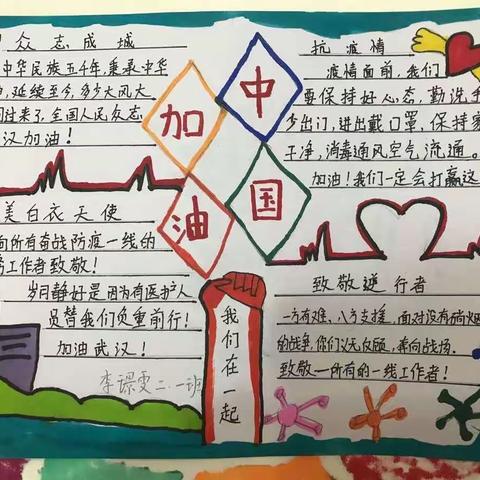 众志成城
中华民族五千年,秉承中华
延续至今,多少大风大
过来了,全国人民众志
汉加油!
美白衣天使
向所有奋战防疫一线的
工作者致敬!
岁月静好是因为有医护人
员替我们负重前行!
加油武汉!
李璟雯二.一班
中
国
加
油
我们在一起
抗疫情
疫情面前,我们
要保持好心态,勤洗手
少出门,进出戴口罩,保持家
干净,消毒通风空气流通。
加油!我们一定会打赢这
致敬逆行者
一方有难、八方支援,面对没有硝烟
的战争,你们义无反顾,奔向战场.
致敬—所有的一线工作者!